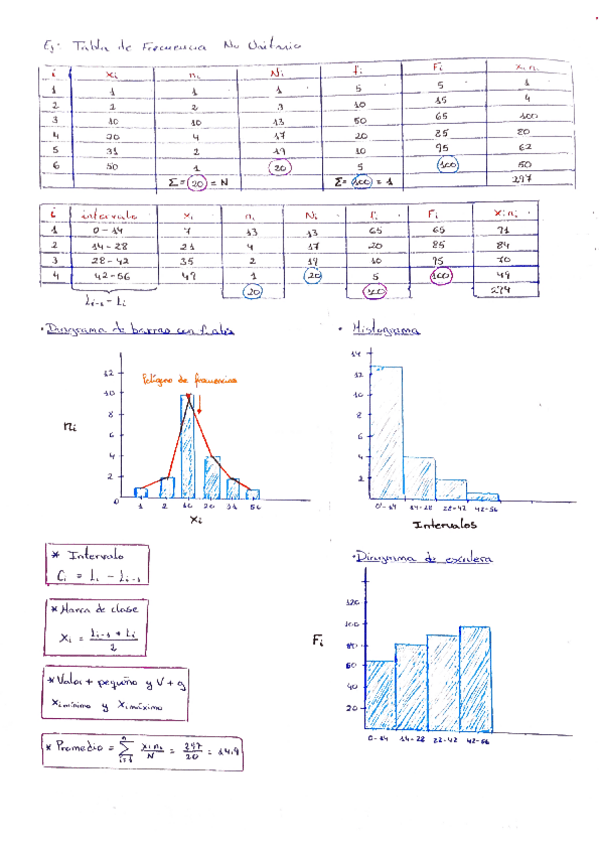 Ej: Tabla de Frecuencia No Unitaria
i xi ni Ni fi Fi xi.ni
1 1 1 1 5 5 1
2 2 2 3 10 15 4
3 10 10 13 50 65 100
4 20 4 17 20 85 80
5 31 2 19 10 95 62
6 50 1 20 5 100 50
Σ= 20 = N Σ= 100 = 1 297
i intervalo xi ni Ni fi Fi xi.ni
1 0-14 7 13 13 65 65 91
2 14-28 21 4 17 20 85 84
3 28-42 35 2 19 10 95 70
4 42-56 49 1 20 5 100 49
Li-1 - Li 20 100 294
• Diagrama de barras
• Histograma
Polígno de frecuencias
12
10
8
6
4
2
0
ni
1 2 10 20 31 50
xi
14
12
10
8
6
4
2
0-14 14-28 28-42 42-56
Intervalos
* Intervalo
Ci = Li - Li-1
* Marca de clase
xi = Li-1 + Li / 2
* Valor + pequeño y V + g
xi mínimo y xi máximo
* Promedio = Σ i=1 n xi ni / N = 297 / 20 = 14.9
• Diagrama de escalera
120
100
80
60
40
20
Fi
0-14 14-28 28-42 42-56